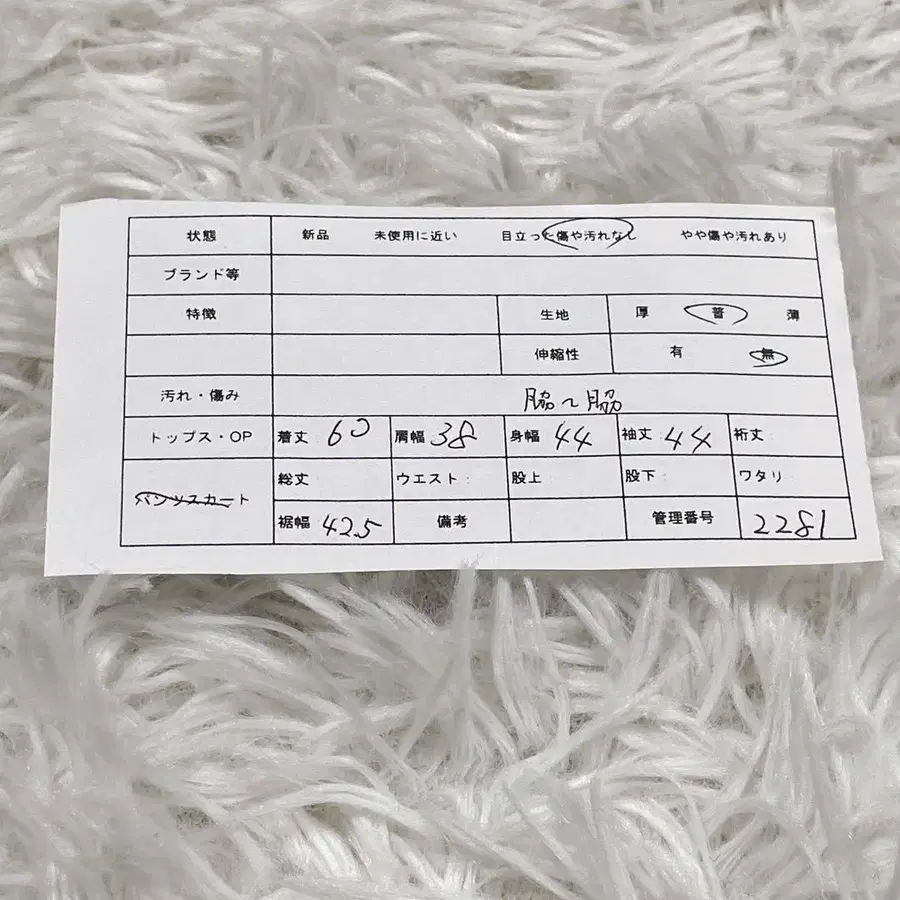 状態 新品 未使用に近い 目立った傷や汚れなし やや傷や汚れあり
ブランド等
特徴 生地 厚 普 薄
伸縮性 有 無
汚れ・傷み 脇〜脇
トップス・OP 着丈: 60 肩幅 38 身幅 44 袖丈: 44 裄丈:
パンツスカート 総丈 ウエスト: 股上 股下: ワタリ
裾幅 42.5 備考 管理番号 2281